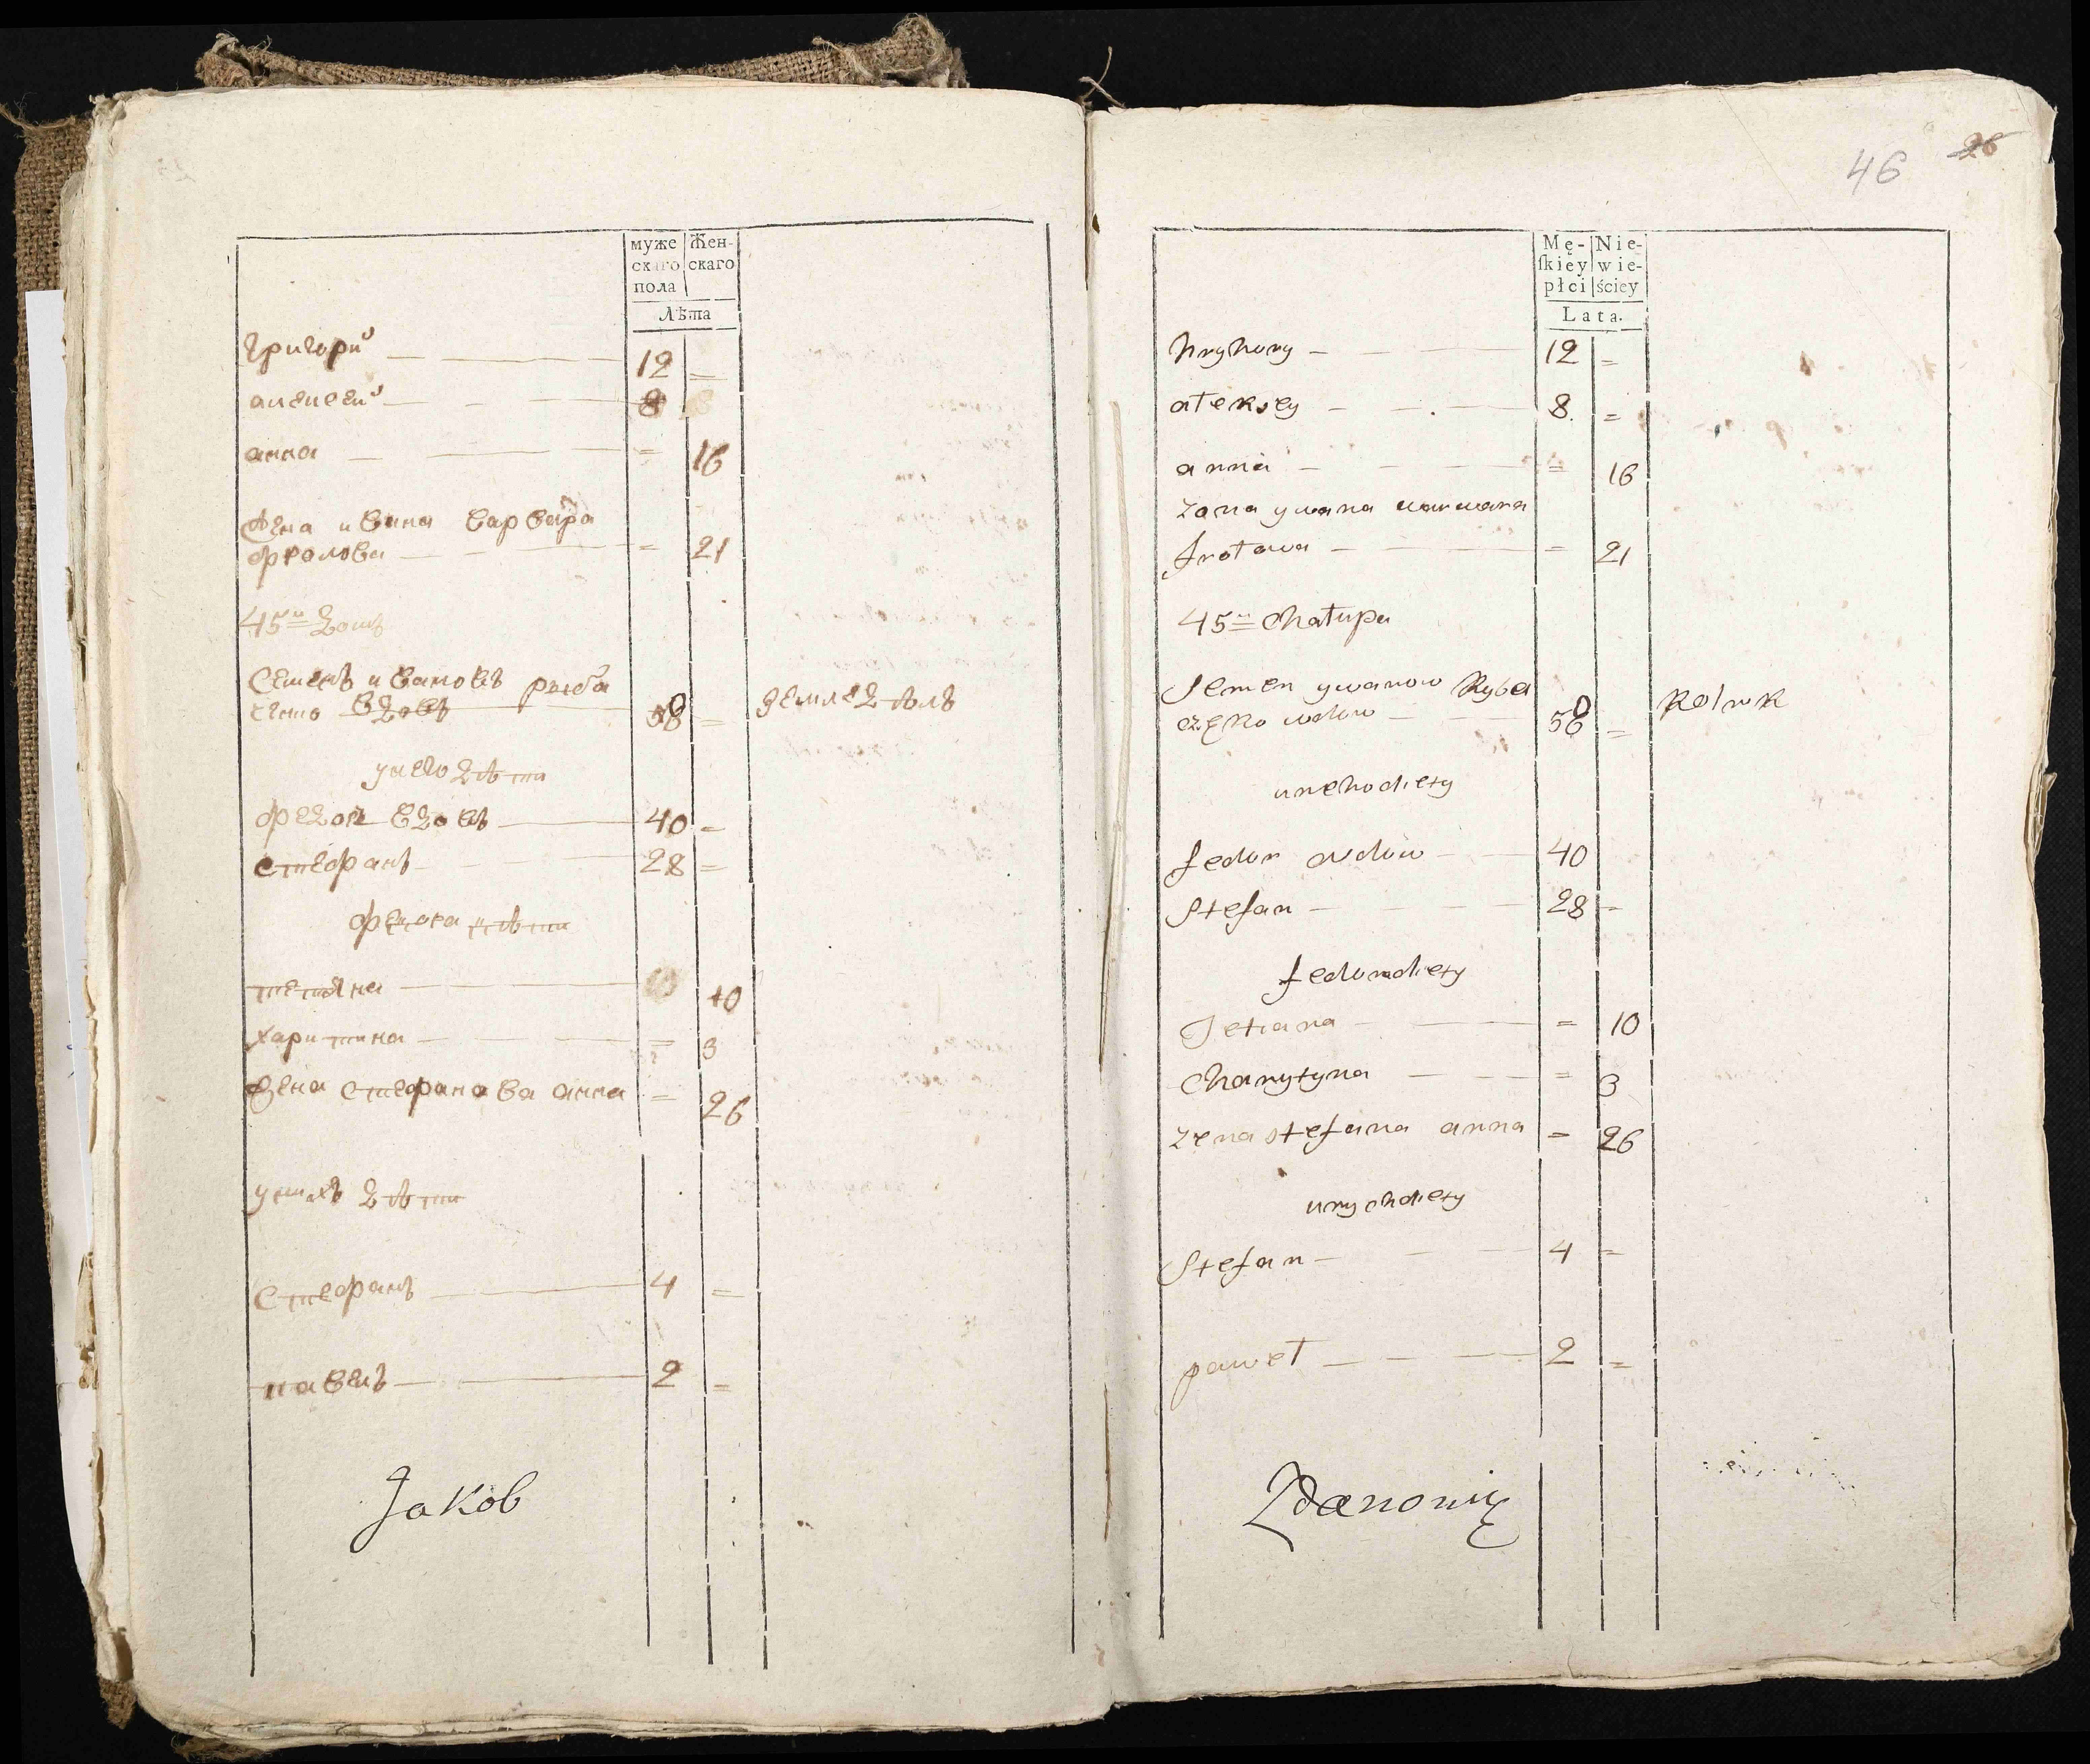 муже
скаго
пола
Жен-
скаго
Лѣта
григорий 12 =
алексей 8
анна = 16
жена ивана варвара
фролова = 21
45й домъ
Семенъ ивановъ рыба
вдовъ 58 = земледѣлъ
у него дѣти
федоръ вдовъ 40 =
стефанъ 28 =
федора дѣти
тетяна 10
харитина = 3
жена стефанова анна = 26
у нихъ дѣти
стефанъ 4 =
павелъ 2 =
Jakób
46 26
Mę-
skiey
płci
Nie-
wie-
ściey
Lata.
hryhory 12 =
ałeksey 8 =
anna = 16
zona ywana warwara
frołowa = 21
45й Chałupa
Semen ywanow Ryba
wdow 58 = Rolnik
unehodiety
fedor wdow 40
Stefan 28 =
fedoradiety
Tetiana = 10
Charytyna = 3
zena stefana anna = 26
unychdiety
Stefan 4 =
paweł 2 =
Zdanowicz